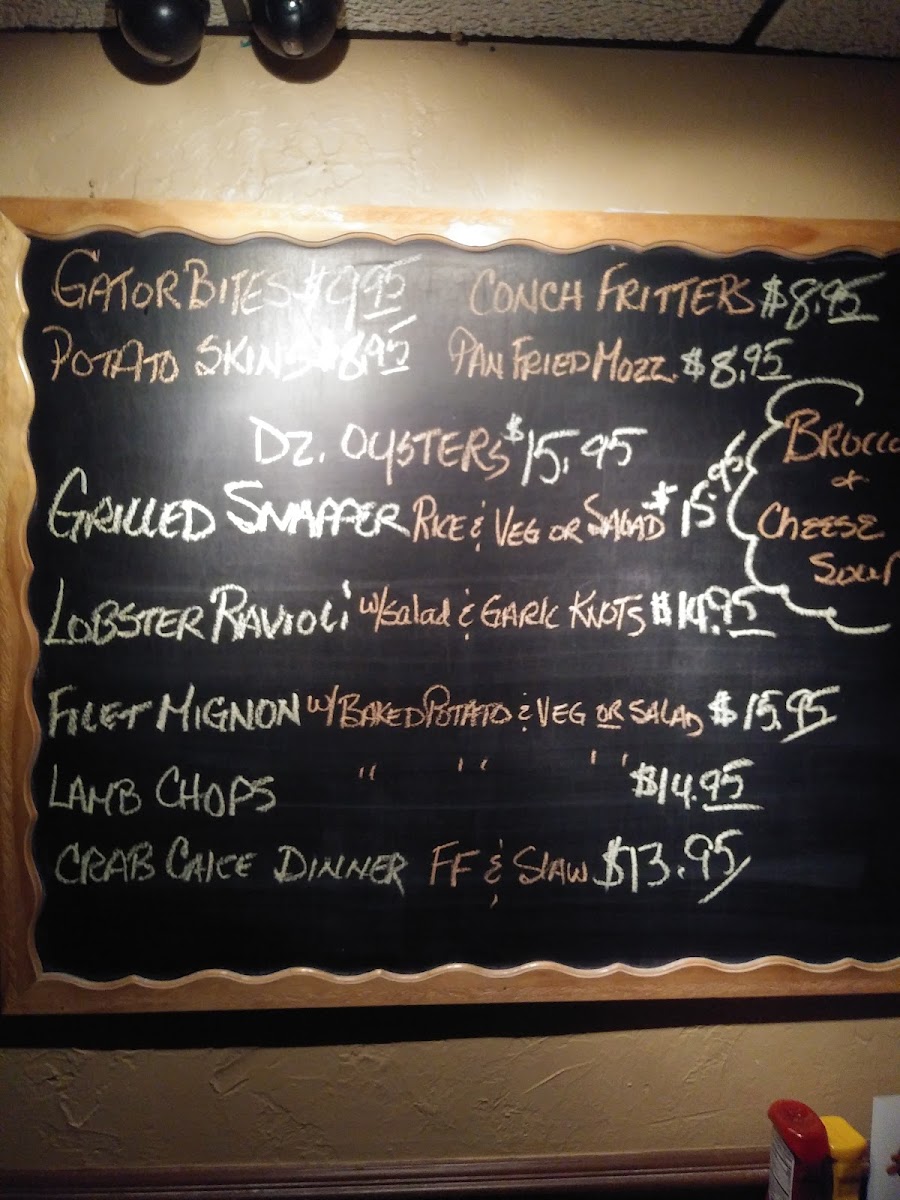 GATOR BITES $9.95 CONCH FRITTERS $8.95
POTATO SKINS $8.95 PAN FRIED MOZZ. $8.95
DZ. OYSTERS $15.95
GRILLED SNAPPER RICE & VEG OR SALAD $15.95
LOBSTER RAVIOLI w/salad & GARLIC KNOTS $14.95
FILET MIGNON w/BAKED POTATO & VEG OR SALAD $15.95
LAMB CHOPS " " " $14.95
CRAB CAKE DINNER FF & SLAW $13.95
BROCC
&
CHEESE
SOUP